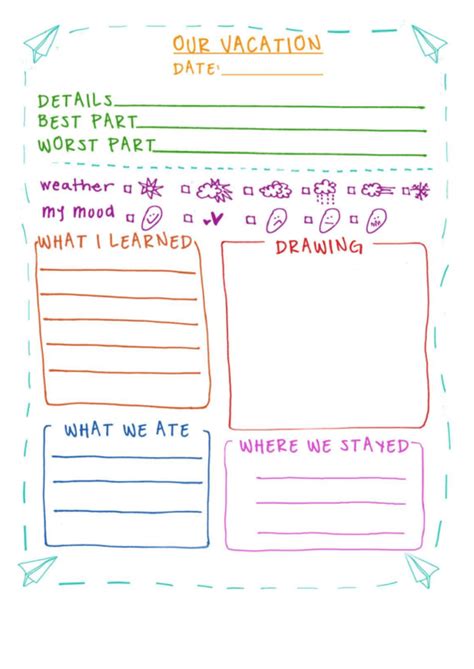 OUR VACATION
DATE:
DETAILS
BEST PART
WORST PART
weather
my mood
WHAT I LEARNED
DRAWING
WHAT WE ATE
WHERE WE STAYED